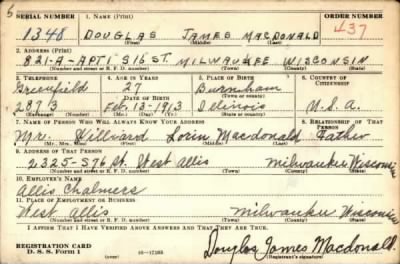 5
SERIAL NUMBER 1. NAME (Print) ORDER NUMBER
1348 DOUGLAS JAMES MACDONALD 437
(First) (Middle) (Last)
2. ADDRESS (Print)
821-A-APT1 S 16 ST. MILWAUKEE WISCONSIN
(Number and street or R. F. D. number) (Town) (County) (State)
3. TELEPHONE 4. AGE IN YEARS 5. PLACE OF BIRTH 6. COUNTRY OF CITIZENSHIP
Greenfield 27 Burnham
DATE OF BIRTH
2873 Feb. 13-1913 Illinois U.S.A.
(Exchange) (Number) (Mo.) (Day) (Yr.) (State or country)
7. NAME OF PERSON WHO WILL ALWAYS KNOW YOUR ADDRESS RELATIONSHIP OF THAT PERSON
Mr. Hilliard Lorin Macdonald Father
(Mr., Mrs., Miss) (First) (Middle) (Last)
9. ADDRESS OF THAT PERSON
2325-S76 St. West Allis Milwaukee Wisconsin
(Number and street or R. F. D. number) (Town) (County) (State)
10. EMPLOYER'S NAME
Allis Chalmers
11. PLACE OF EMPLOYMENT OR BUSINESS
West Allis Milwaukee Wisconsin
(Number and street or R. F. D. number) (Town) (County) (State)
I AFFIRM THAT I HAVE VERIFIED ABOVE ANSWERS AND THAT THEY ARE TRUE.
REGISTRATION CARD
D. S. S. Form 1 Douglas James Macdonald.
(Registrant's signature)